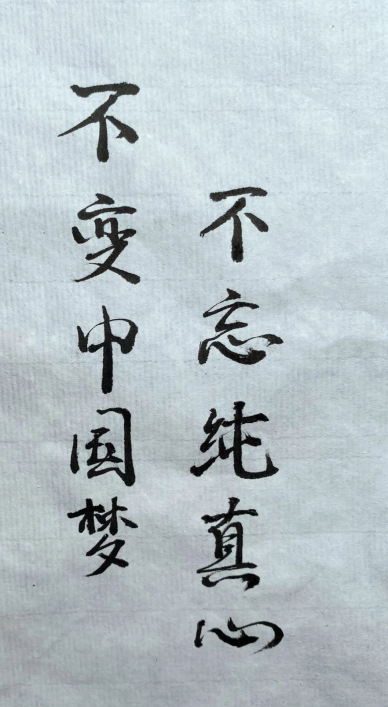 不忘纯真心
不变中国梦